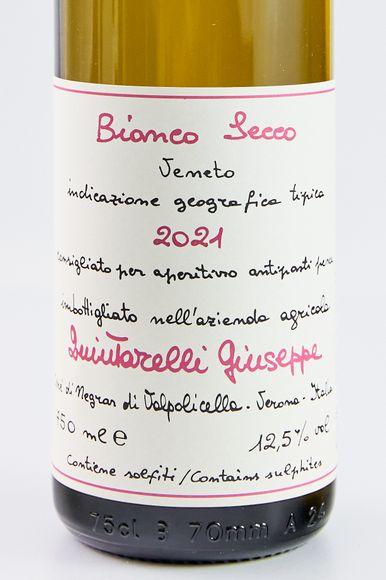 Bianco Secco
Veneto
indicazione geografica tipica
2021
consigliato per aperitivo antipasti pesce
imbottigliato nell'azienda agricola
Quintarelli Giuseppe
di Negrar di Valpolicella - Verona - Italia
750 ml e 12,5% vol
Contiene solfiti/Contains sulphites
75cl 9 70mm A 24